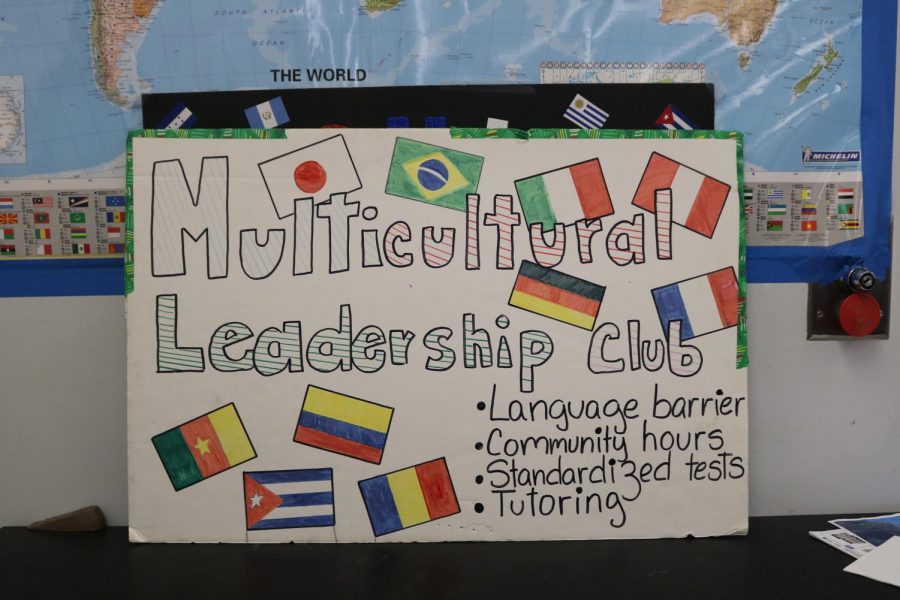 SOUTH ATLANTIC
OCEAN
OCEAN
THE WORLD
MICHELIN
Multicultural
Leadership Club
•Language barrier
•Community hours
•Standardized tests
•Tutoring